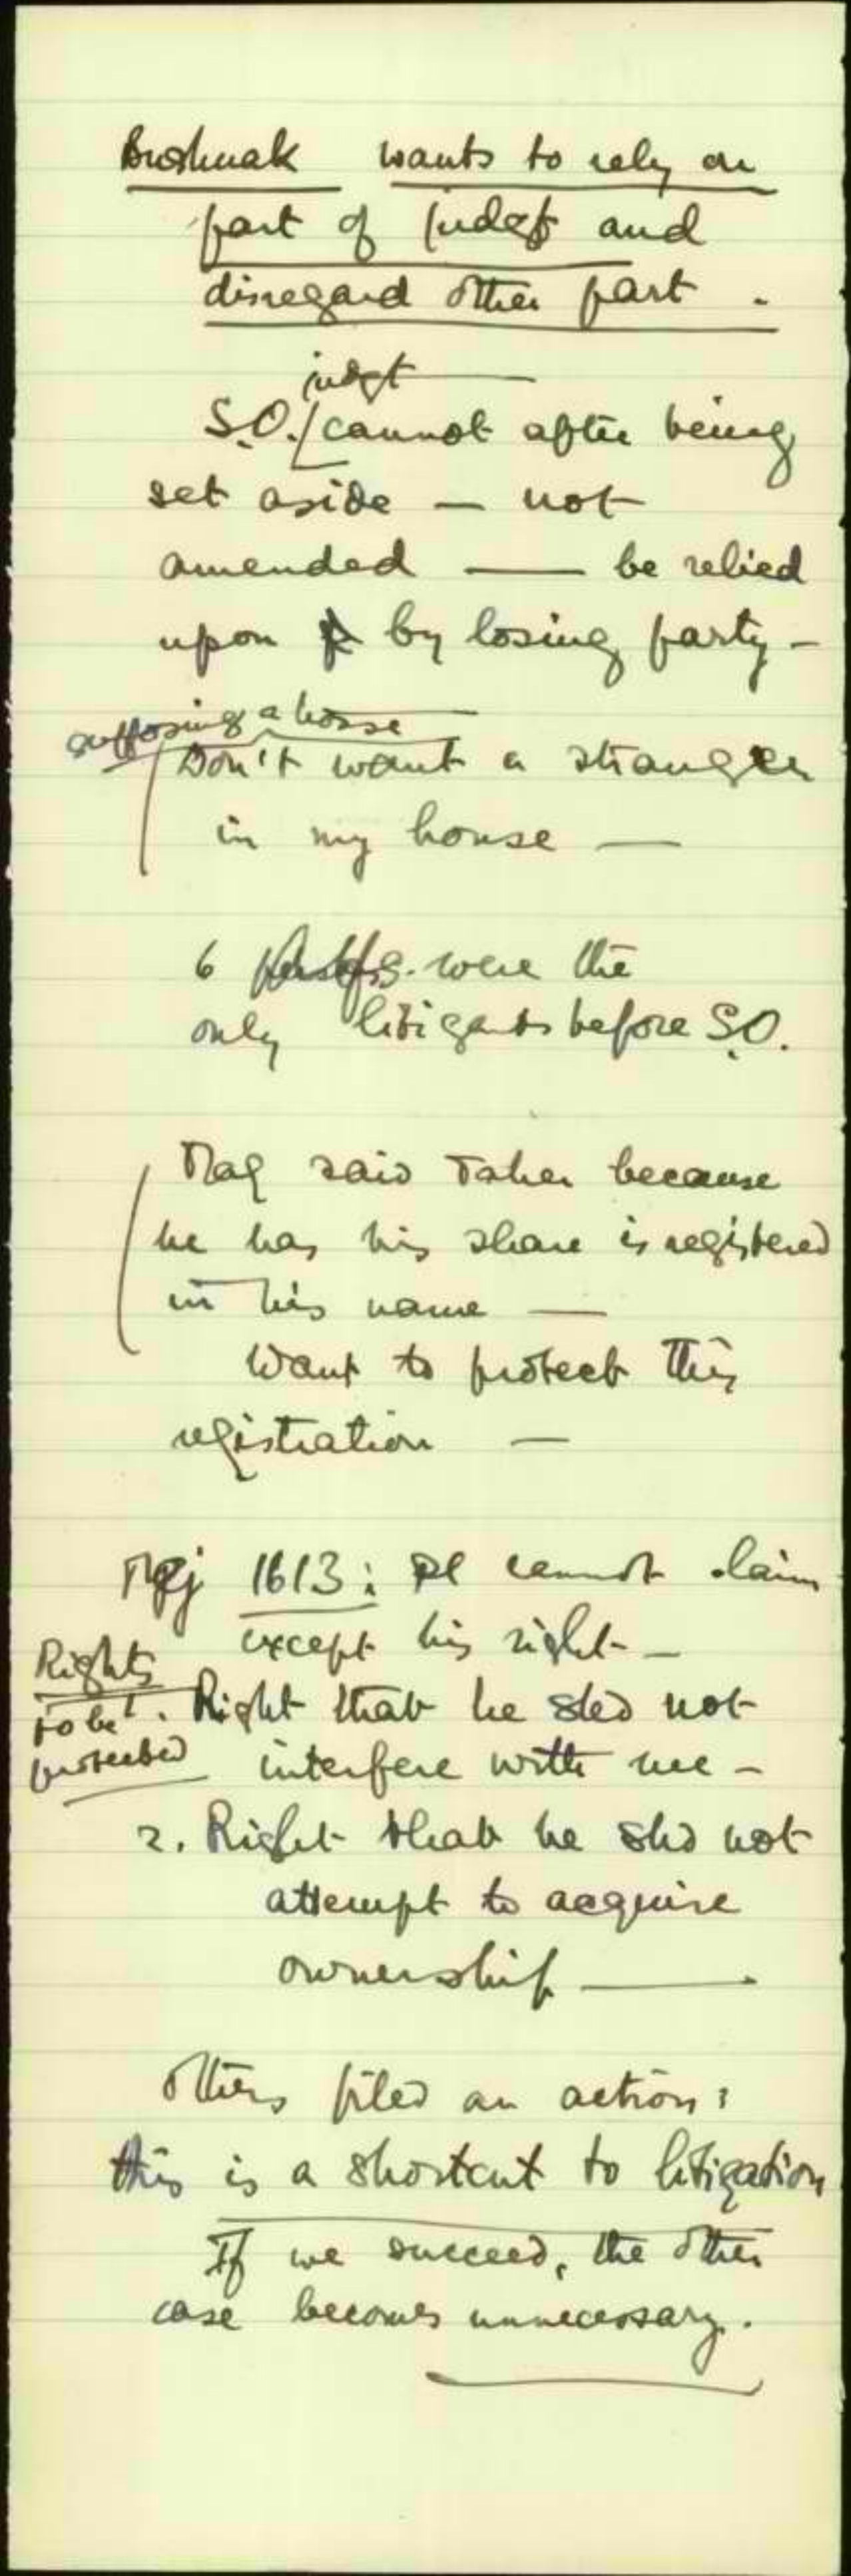 Bushnak wants to rely on
part of judgt and
disregard other part .
judgt
S.O. cannot after being
set aside — not
amended — be relied
upon by losing party -
supposing a house
Don't want a stranger
in my house —
6 were the
only litigants before S.O.
said Taher because
he has his share is registered
in his name —
Want to protect this
registration —
1613: Pl cannot claim
except his right -
Rights
to be
protected
1. Right that he shd not
interfere with me -
2. Right that he shd not
attempt to acquire
ownership — .
Others filed an action:
this is a shortcut to litigation
If we succeed, the other
case becomes unnecessary.